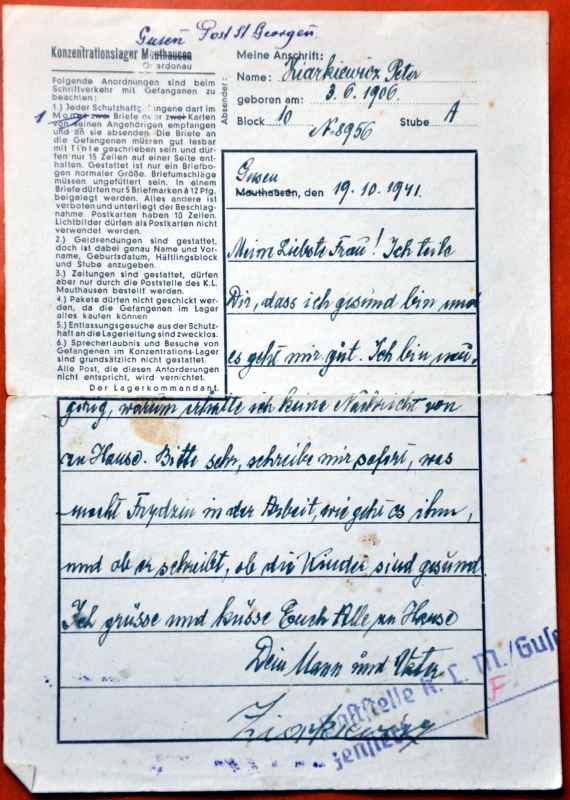 Gusen Post St Georgen.
Konzentrationslager Mauthausen
Oberdonau
Folgende Anordnungen sind beim
Schriftverkehr mit Gefangenen zu
beachten:
1.) Jeder Schutzhaftgefangene darf im
1 Monat zwei Briefe oder zwei Karten
von seinen Angehörigen empfangen
und an sie absenden. Die Briefe an
die Gefangenen müssen gut lesbar
mit Tinte geschrieben sein und dür-
fen nur 15 Zeilen auf einer Seite ent-
halten. Gestattet ist nur ein Briefbo-
gen normaler Größe. Briefumschläge
müssen ungefüttert sein. In einem
Briefe dürfen nur 5 Briefmarken à 12 Pfg.
beigelegt werden. Alles andere ist
verboten und unterliegt der Beschlag-
nahme. Postkarten haben 10 Zeilen.
Lichtbilder dürfen als Postkarten nicht
verwendet werden.
2.) Geldsendungen sind gestattet,
doch ist dabei genau Name und Vor-
name, Geburtsdatum, Häftlingsblock
und Stube anzugeben.
3.) Zeitungen sind gestattet, dürfen
aber nur durch die Poststelle des K.L.
Mauthausen bestellt werden.
4.) Pakete dürfen nicht geschickt wer-
den, da die Gefangenen im Lager
alles kaufen können
5.) Entlassungsgesuche aus der Schutz-
haft an die Lagerleitung sind zwecklos.
6.) Sprecherlaubnis und Besuche von
Gefangenen im Konzentrations-Lager
sind grundsätzlich nicht gestattet.
Alle Post, die diesen Anforderungen
nicht entspricht, wird vernichtet.
Der Lagerkommandant
Absender:
Meine Anschrift:
Name: Ziarkiewicz Peter
geboren am: 3.6.1906.
Block 10 Stube A
N-8956
Gusen
Mauthausen, den 19.10.1941.
Meine Liebste Frau! Ich teile
Dir, dass ich gesund bin und
es geht mir gut. Ich bin neu-
gierig, warum erhalte ich keine Nachricht von
zu Hause. Bitte sehr, schreibe mir sofort, was
macht Frydzin in der Arbeit, wie geht es ihm,
und ob er schreibt, ob die Kinder sind gesund.
Ich grüsse und küsse Euch Alle zu Hause
Dein Mann und Vater
Poststelle K. L. M./Guse
F